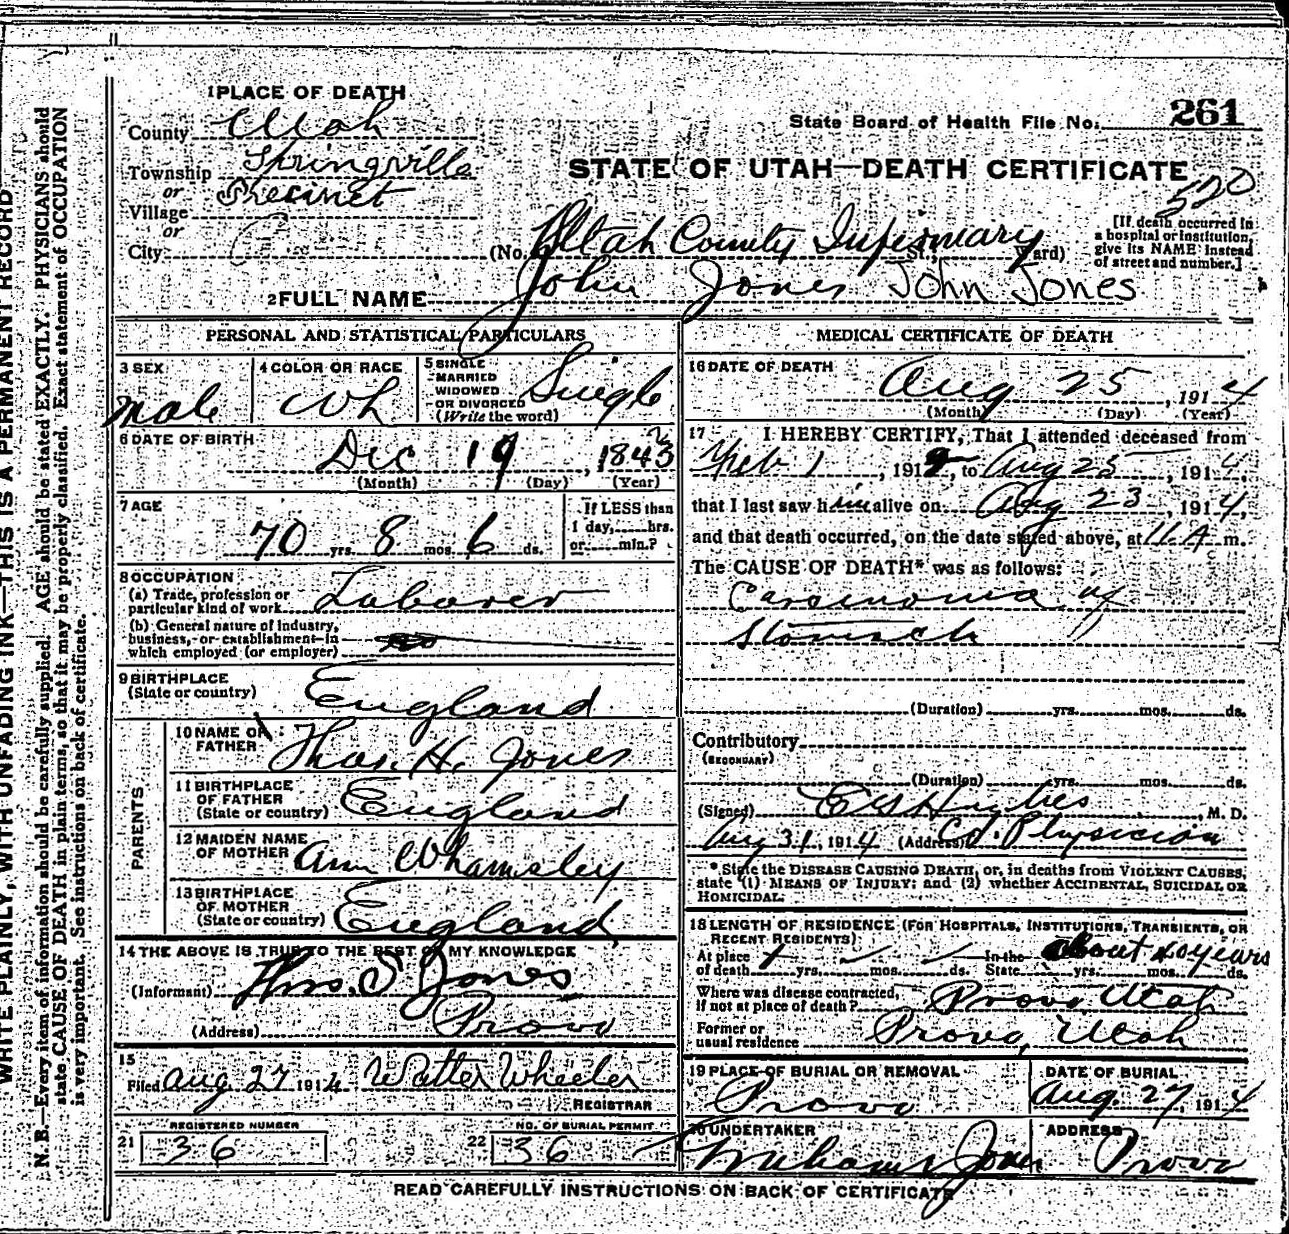 WRITE PLAINLY, WITH UNFADING INK—THIS IS A PERMANENT RECORD
N. B.—Every item of information should be carefully supplied. AGE should be stated EXACTLY. PHYSICIANS should
state CAUSE OF DEATH in plain terms, so that it may be properly classified. Exact statement of OCCUPATION
is very important. See instructions on back of certificate.
1 PLACE OF DEATH
County Utah
Township Springville
or Precinct
Village
or
City
State Board of Health File No. 261
STATE OF UTAH—DEATH CERTIFICATE
520
(No. Utah County Infirmary St.; Ward)
[If death occurred in
a hospital or institution,
give its NAME instead
of street and number.]
2 FULL NAME John Jones John Jones
PERSONAL AND STATISTICAL PARTICULARS
3 SEX
male
4 COLOR OR RACE
Wh
5 SINGLE
MARRIED
WIDOWED
OR DIVORCED
(Write the word)
Single
6 DATE OF BIRTH
Dec 19, 1843
(Month) (Day) (Year)
7 AGE
70 yrs. 8 mos. 6 ds.
If LESS than
1 day, hrs.
or min.?
8 OCCUPATION
(a) Trade, profession or
particular kind of work Laborer
(b) General nature of industry,
business, or establishment in
which employed (or employer)
9 BIRTHPLACE
(State or country) England
PARENTS
10 NAME OF
FATHER Thos. H. Jones
11 BIRTHPLACE
OF FATHER
(State or country) England
12 MAIDEN NAME
OF MOTHER Ann Whamsley
13 BIRTHPLACE
OF MOTHER
(State or country) England
14 THE ABOVE IS TRUE TO THE BEST OF MY KNOWLEDGE
(Informant) Thos. S Jones
(Address) Provo
15
Filed Aug. 27 1914 Walter Wheeler
REGISTRAR
REGISTERED NUMBER
21 36
NO. OF BURIAL PERMIT
22 36
MEDICAL CERTIFICATE OF DEATH
16 DATE OF DEATH
Aug 25, 1914
(Month) (Day) (Year)
17 I HEREBY CERTIFY, That I attended deceased from
Feb 1, 191 , to Aug 25, 1914,
that I last saw him alive on Aug 23, 1914,
and that death occurred, on the date stated above, at 11 A m.
The CAUSE OF DEATH* was as follows:
Carsinomia of
Stomach
(Duration) yrs. mos. ds.
Contributory
(SECONDARY)
(Duration) yrs. mos. ds.
(Signed) Hughes, M. D.
Aug 31, 1914 (Address) Co. Physician
*State the DISEASE CAUSING DEATH, or, in deaths from VIOLENT CAUSES,
state (1) MEANS OF INJURY; and (2) whether ACCIDENTAL, SUICIDAL OR
HOMICIDAL.
18 LENGTH OF RESIDENCE (FOR HOSPITALS, INSTITUTIONS, TRANSIENTS, OR
RECENT RESIDENTS)
At place
of death yrs. mos. ds. In the
State yrs. mos. ds. about years
Where was disease contracted,
if not at place of death? Provo Utah
Former or
usual residence Provo, Utah
19 PLACE OF BURIAL OR REMOVAL
Provo
DATE OF BURIAL
Aug. 27, 1914
20 UNDERTAKER
Jones
ADDRESS
Provo
READ CAREFULLY INSTRUCTIONS ON BACK OF CERTIFICATE